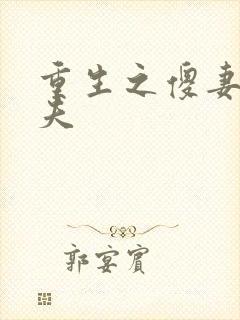 重生之傻妻
夫
郭宴賓